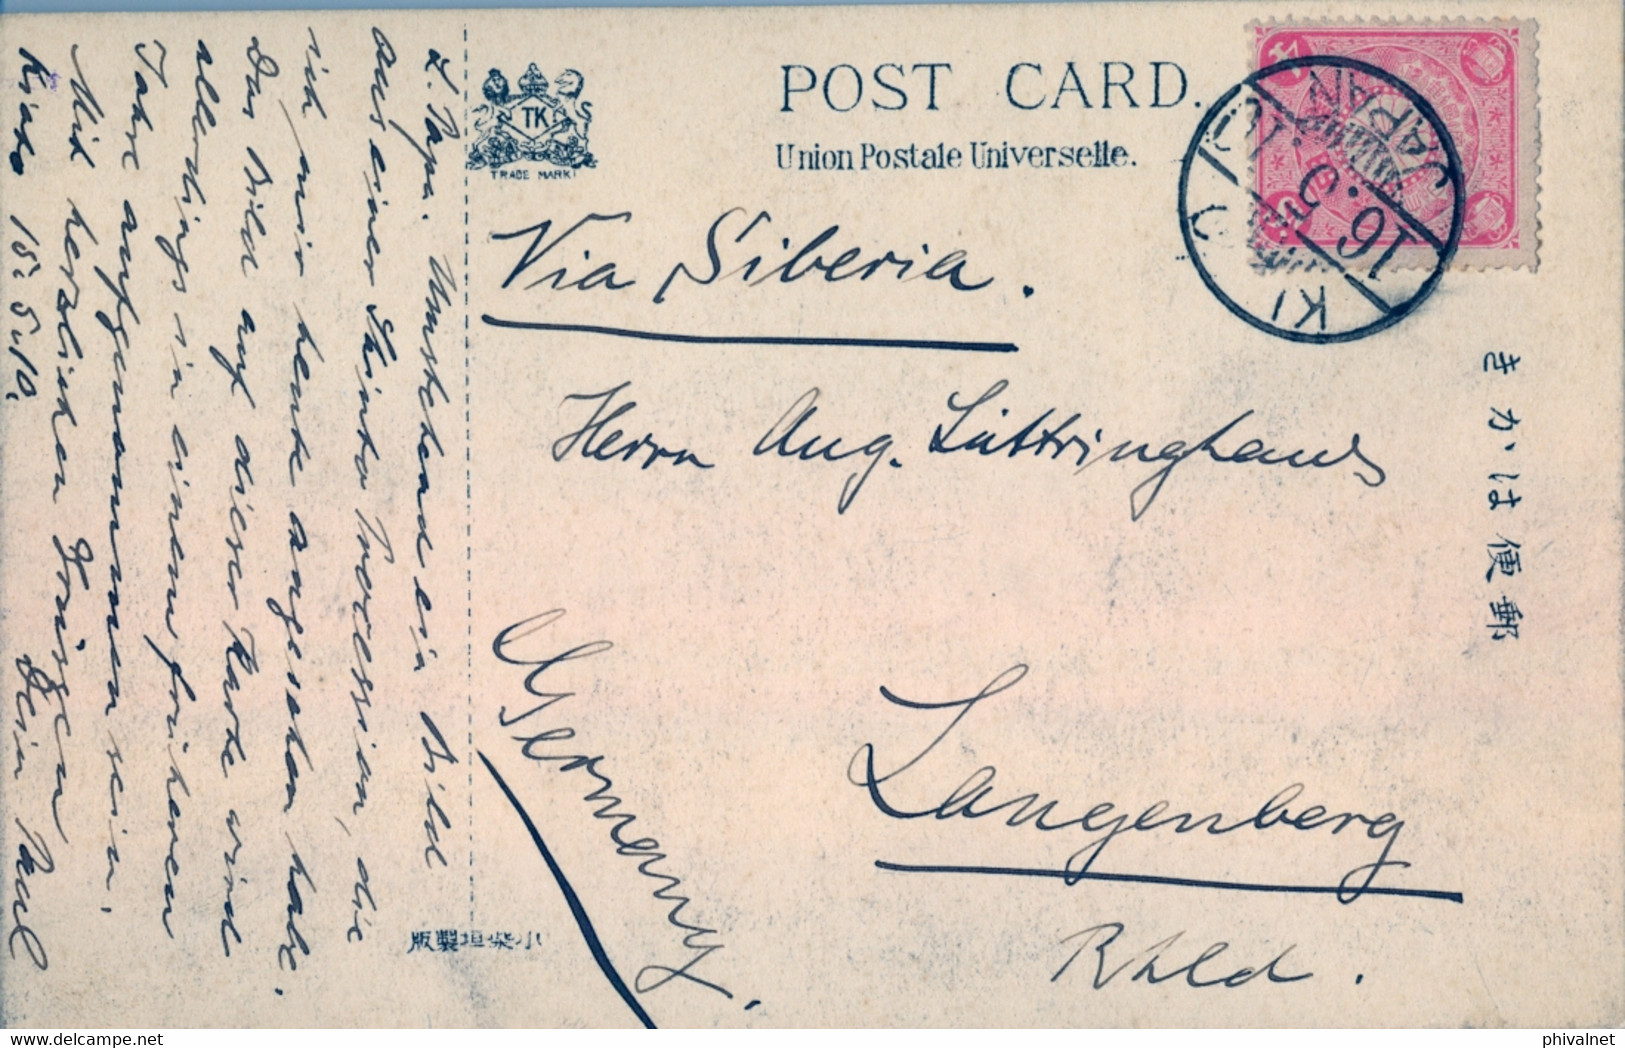 POST CARD.
Union Postale Universelle.
TK
TRADE MARK
JAPAN
16.5.10
KIOTO
Via Siberia.
Herrn Aug. Lüttringhaus
Langenberg
Rhld.
Germany.
きかは便郵
版製垣柴小
L. Papa. Umstehend ein Bild
aus einer Shinto Procession, die
ich mir heute angesehen habe.
Das Bild auf dieser Karte wird
allerdings in einem früheren
Jahre aufgenommen sein.
Mit herzlichen Grüssen
Dein Paul
Kioto 15.5.10.
phivalnet